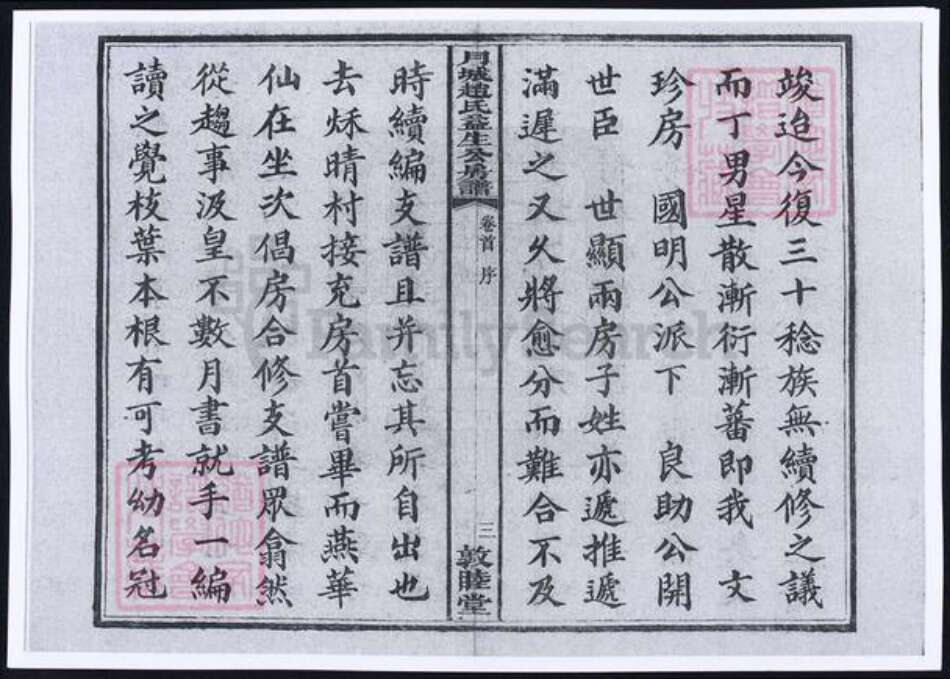 竣迨今復三十稔族無續修之議
而丁男星散漸衍漸蕃即我 文
珍房 國明公派下 良助公開
世臣 世顯兩房子姓亦遞推遞
滿遲之又久將愈分而難合不及
月城趙氏益生公房譜 卷首 序 三 敦睦堂
時續編支譜且并忘其所自出也
去秌晴村接充房首嘗畢而燕華
仙在坐次倡房合修支譜眾翕然
從趨事汲皇不數月書就手一編
讀之覺枝葉本根有可考幼名冠
FamilySearch